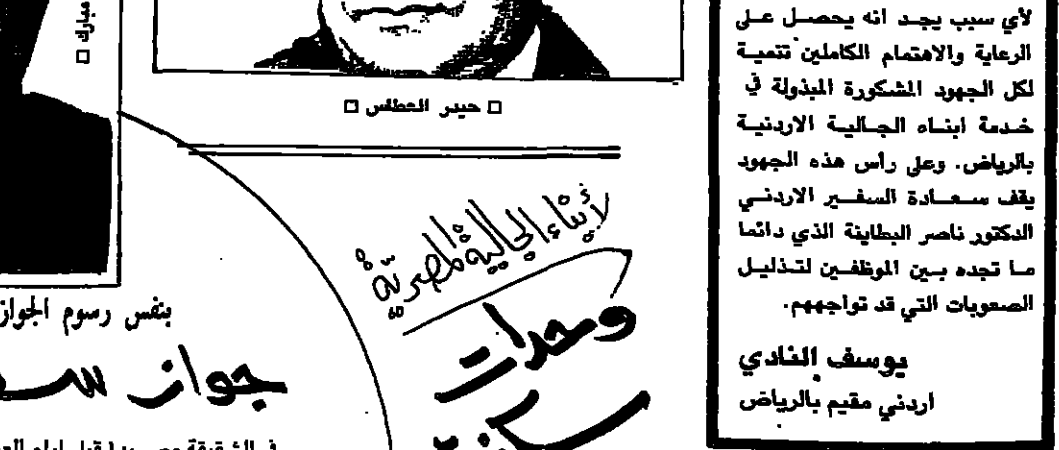 لأي سبب يجد انه يحصل على
الرعاية والاهتمام الكاملين تتمية
لكل الجهود المشكورة المبذولة في
خدمة ابناء الجالية الاردنية
بالرياض. وعلى رأس هذه الجهود
يقف سعادة السفير الاردني
الدكتور ناصر البطاينة الذي دائما
ما تجده بين الموظفين لتذليل
الصعوبات التي قد تواجههم.
يوسف النادي
اردني مقيم بالرياض
□ حيدر العطاس □
لأبناء الجالية المصرية
وحدات
مبارك □
بنفس رسوم الجواز
جواز